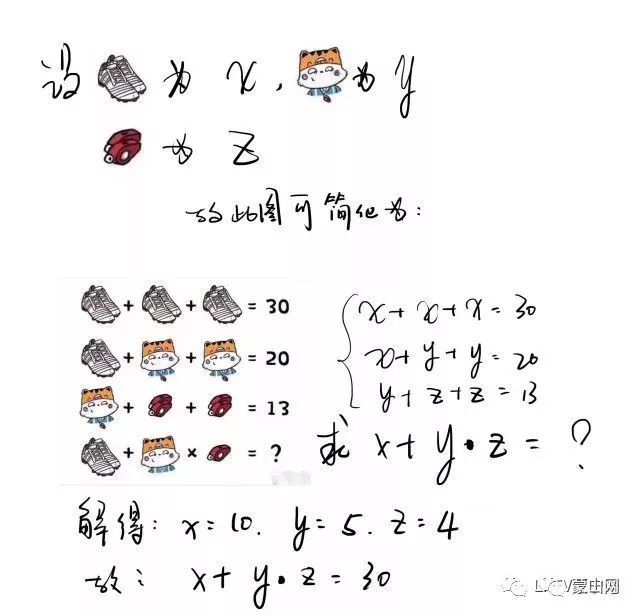 设 为 x, 为 y
为 z
故此图可简化为:
+ + = 30
+ + = 20
+ + = 13
+ × = ?
x+x+x=30
x+y+y=20
y+z+z=13
求 x+y·z=?
解得: x=10. y=5. z=4
故: x+y·z=30